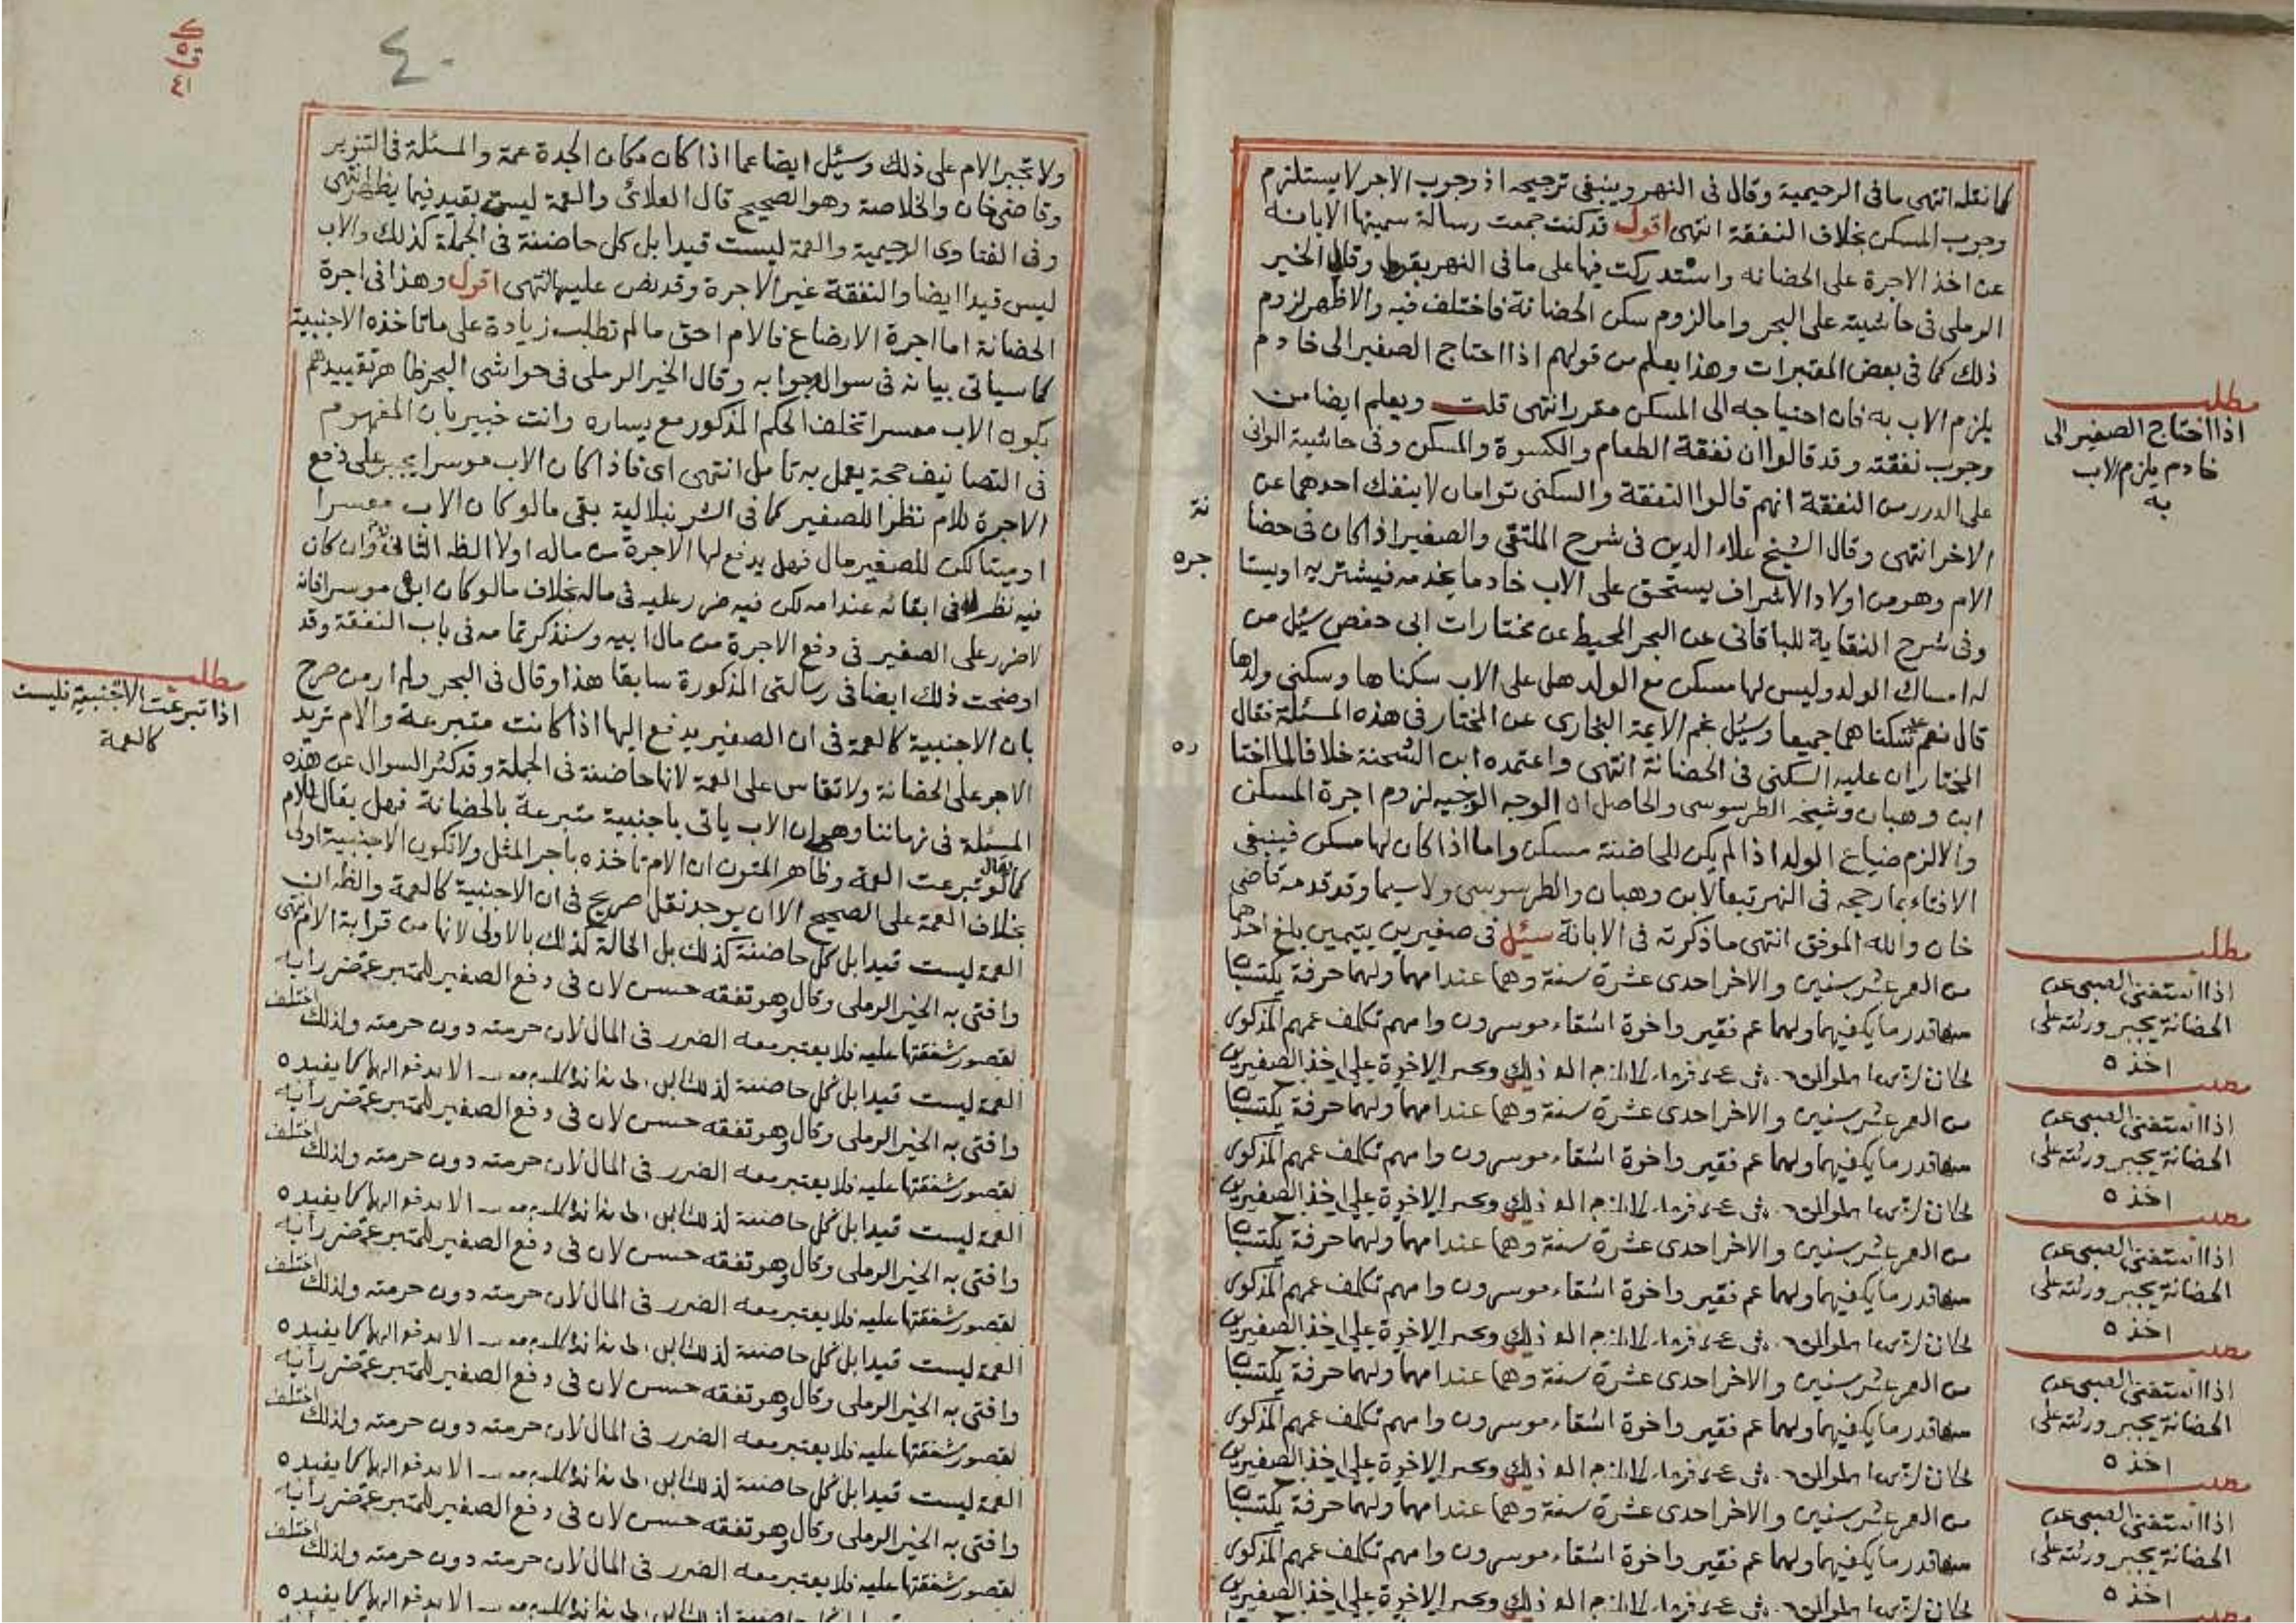 كما نقله انتهى ما فى الرحيمية وقال فى النهر وينبغى ترجيحه اذ وجوب الاجر لا يستلزم
وجوب المسكن بخلاف النفقة انتهى اقول قد كنت جمعت رسالة سميتها الابانه
عن اخذ الاجرة على الحضانه واستدركت فيها على ما فى النهر وقال الخير
الرملى فى حاشيته على البحر واما لزوم سكن الحضانة فاختلف فيه والاظهر لزوم
ذلك كما فى بعض المعتبرات وهذا يعلم من قولهم اذا احتاج الصغير الى خادم
يلزم الاب به فان احتياجه الى المسكن مقرر انتهى قلت ويعلم ايضا من
وجوب نفقته وقد قالوا ان نفقة الطعام والكسوة والمسكن وفى حاشية الوانى
على الدرر من النفقة انهم قالوا النفقة والسكنى توامان لا ينفك احدهما عن
الاخر انتهى وقال الشيخ علاء الدين فى شرح الملتقى والصغير اذا كان فى حضا
نة
الام وهو من اولاد الاشراف يستحق على الاب خادما يخدمه فيشتريه او يستا
جره
وفى شرح النقاية للباقانى عن البحر المحيط عن مختارات ابى حفص سئل من
له امساك الولد وليس لها مسكن مع الولد هل على الاب سكناها وسكنى ولدها
قال نعم عليه سكناهما جميعا وسئل نجم الايمة البخارى عن المختار فى هذه المسئلة فقال
المختار ان عليه السكنى فى الحضانة انتهى واعتمده ابن الشحنة خلافا لما اختا
ره
ابن وهبان وشيخه الطرسوسى والحاصل ان الوجه الوجيه لزوم اجرة المسكن
والا لزم ضياع الولد اذا لم يكن للحاضنة مسكن واما اذا كان لها مسكن فينبغى
الافتاء بما رجحه فى النهر تبعا لابن وهبان والطرسوسى ولا سيما وقد قدمه قاضى
خان والله الموفق انتهى ما ذكرته فى الابانة سئل فى صغيرين يتيمين بلغ احدهما
من العمر عشر سنين والاخر احدى عشرة سنة وهما عند امهما ولهما حرفة يكتسبان
منها قدر ما يكفيهما ولهما عم فقير واخوة اشقاء موسرون وامهم تكلف عمهم المذكور
ويجبر الاخوة على اخذ الصغيرين
من العمر عشر سنين والاخر احدى عشرة سنة وهما عند امهما ولهما حرفة يكتسبان
منها قدر ما يكفيهما ولهما عم فقير واخوة اشقاء موسرون وامهم تكلف عمهم المذكور
ويجبر الاخوة على اخذ الصغيرين
من العمر عشر سنين والاخر احدى عشرة سنة وهما عند امهما ولهما حرفة يكتسبان
منها قدر ما يكفيهما ولهما عم فقير واخوة اشقاء موسرون وامهم تكلف عمهم المذكور
ويجبر الاخوة على اخذ الصغيرين
من العمر عشر سنين والاخر احدى عشرة سنة وهما عند امهما ولهما حرفة يكتسبان
منها قدر ما يكفيهما ولهما عم فقير واخوة اشقاء موسرون وامهم تكلف عمهم المذكور
ويجبر الاخوة على اخذ الصغيرين
من العمر عشر سنين والاخر احدى عشرة سنة وهما عند امهما ولهما حرفة يكتسبان
منها قدر ما يكفيهما ولهما عم فقير واخوة اشقاء موسرون وامهم تكلف عمهم المذكور
ويجبر الاخوة على اخذ الصغيرين
مطلب
اذا احتاج الصغير الى
خادم يلزم الاب
به
مطلب
اذا استغنى الصبى عن
الحضانة يجبر ورثته على
اخذه
اذا استغنى الصبى عن
الحضانة يجبر ورثته على
اخذه
اذا استغنى الصبى عن
الحضانة يجبر ورثته على
اخذه
اذا استغنى الصبى عن
الحضانة يجبر ورثته على
اخذه
اذا استغنى الصبى عن
الحضانة يجبر ورثته على
اخذه
٤٠
ولا تجبر الام على ذلك وسئل ايضا عما اذا كان مكان الجدة عمة والمسئلة فى التنوير
وقاضى خان والخلاصة وهو الصحيح قال العلائى والعمة ليست بقيد فيما يظهر انتهى
وفى الفتاوى الرحيمية والعمة ليست قيدا بل كل حاضنة فى الجملة كذلك والاب
ليس قيدا ايضا والنفقة غير الاجرة وقد نص عليها انتهى اقول وهذا فى اجرة
الحضانة اما اجرة الارضاع فالام احق ما لم تطلب زيادة على ما تاخذه الاجنبية
كما سياتى بيانه فى سوال وجوابه وقال الخير الرملى فى حواشى البحر ظاهر تقييدهم
بكون الاب معسرا تخلف الحكم المذكور مع يساره وانت خبير بان المفهوم
فى التصانيف حجة يعمل به تامل انتهى اى فاذا كان الاب موسرا يجبر على دفع
الاجرة للام نظرا للصغير كما فى الشرنبلالية بقى ما لو كان الاب معسرا
او ميتا لكن للصغير مال فهل يدفع لها الاجرة من ماله اولا الظ الثانى لانه وان كان
فيه نظر له فى ابقائه عند امه لكن فيه ضرر عليه فى ماله بخلاف ما لو كان ابوه موسرا فانه
لا ضرر على الصغير فى دفع الاجرة من مال ابيه وسنذكر تمامه فى باب النفقة وقد
اوضحت ذلك ايضا فى رسالتى المذكورة سابقا هذا وقال فى البحر ولم ار من صرح
بان الاجنبية كالعمة فى ان الصغير يدفع اليها اذا كانت متبرعة والام تريد
الاجر على الحضانة ولا تقاس على العمة لانها حاضنة فى الجملة وقد كثر السوال عن هذه
المسئلة فى زماننا وهى ان الاب ياتى باجنبية متبرعة بالحضانة فهل يقال للام
كما يقال لو تبرعت العمة وظاهر المتون ان الام تاخذه باجر المثل ولا تكون الاجنبية اولى
بخلاف العمة على الصحيح الا ان يوجد نقل صريح فى ان الاجنبية كالعمة والظ ان
العمة ليست قيدا بل كل حاضنة كذلك بل الخالة كذلك بالاولى لانها من قرابة الام انتهى
وافتى به الخير الرملى وقال وهو تفقه حسن لان فى دفع الصغير للمتبرعة ضررا به
لقصور شفقتها عليه فلا يعتبر معه الضرر فى المال لان حرمته دون حرمته ولذلك اختلف
العمة ليست قيدا بل كل حاضنة كذلك
وافتى به الخير الرملى وقال وهو تفقه حسن لان فى دفع الصغير للمتبرعة ضررا به
لقصور شفقتها عليه فلا يعتبر معه الضرر فى المال لان حرمته دون حرمته ولذلك اختلف
العمة ليست قيدا بل كل حاضنة كذلك
وافتى به الخير الرملى وقال وهو تفقه حسن لان فى دفع الصغير للمتبرعة ضررا به
لقصور شفقتها عليه فلا يعتبر معه الضرر فى المال لان حرمته دون حرمته ولذلك اختلف
العمة ليست قيدا بل كل حاضنة كذلك
وافتى به الخير الرملى وقال وهو تفقه حسن لان فى دفع الصغير للمتبرعة ضررا به
لقصور شفقتها عليه فلا يعتبر معه الضرر فى المال لان حرمته دون حرمته ولذلك اختلف
العمة ليست قيدا بل كل حاضنة كذلك
وافتى به الخير الرملى وقال وهو تفقه حسن لان فى دفع الصغير للمتبرعة ضررا به
لقصور شفقتها عليه فلا يعتبر معه الضرر فى المال لان حرمته دون حرمته ولذلك اختلف
مطلب
اذا تبرعت الاجنبية فليست
كالعمة